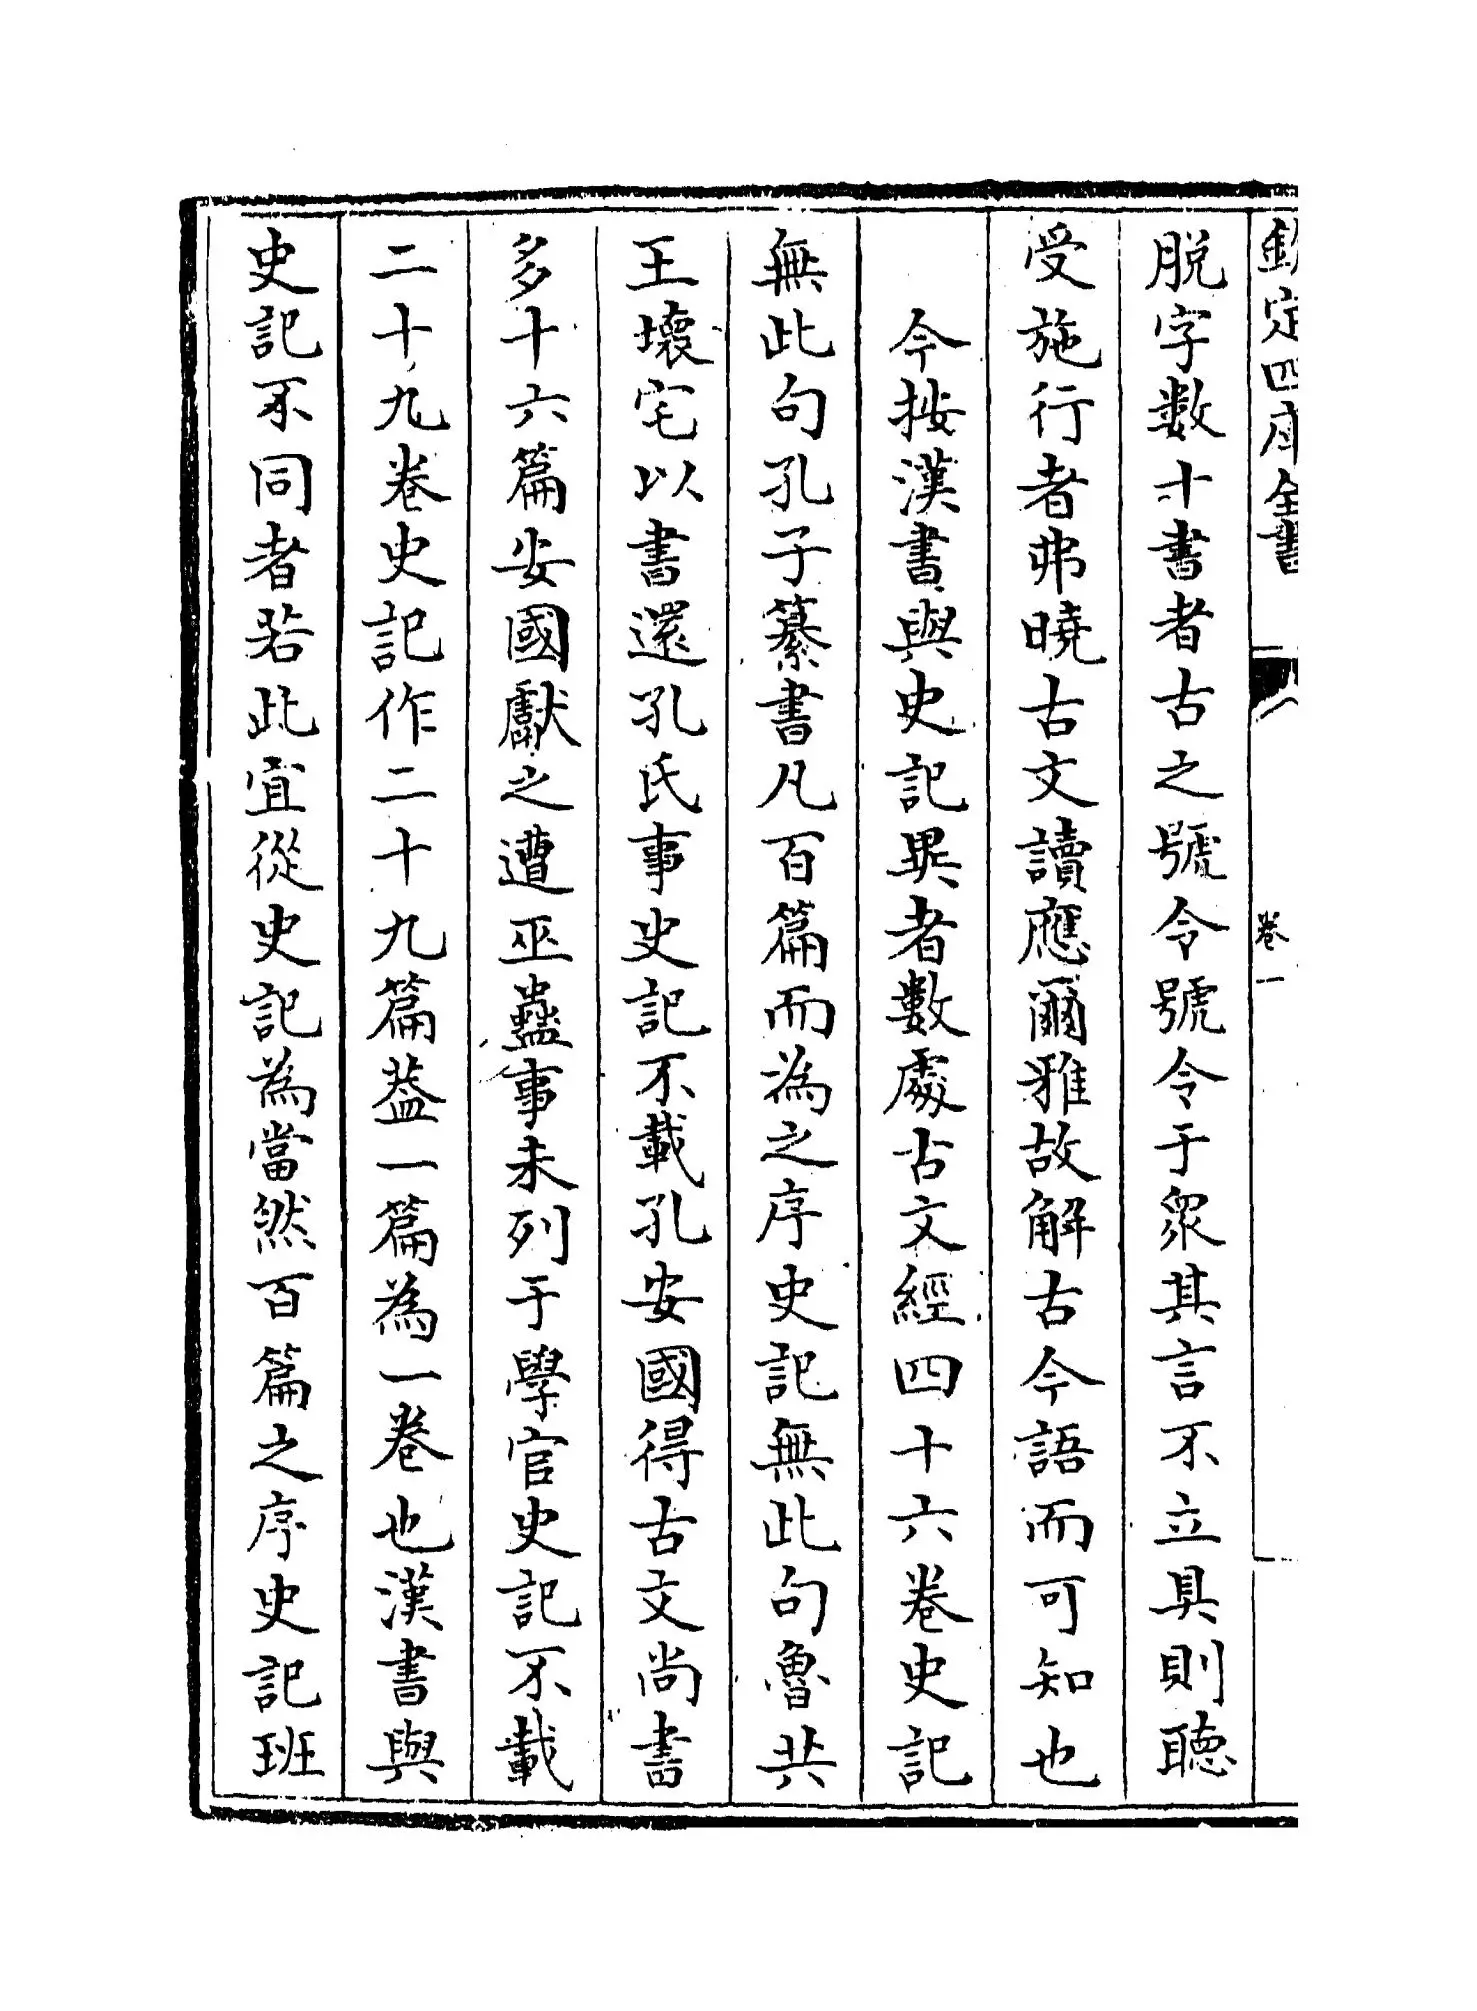 欽定四庫全書
卷一
脫字數十書者古之號令號令于衆其言不立具則聽
受施行者弗曉古文讀應爾雅故解古今語而可知也
今按漢書與史記異者數處古文經四十六卷史記
無此句孔子纂書凡百篇而為之序史記無此句魯共
王壞宅以書還孔氏事史記不載孔安國得古文尚書
多十六篇安國獻之遭巫蠱事未列于學官史記不載
二十九卷史記作二十九篇葢一篇為一卷也漢書與
史記不同者若此宜從史記為當然百篇之序史記班